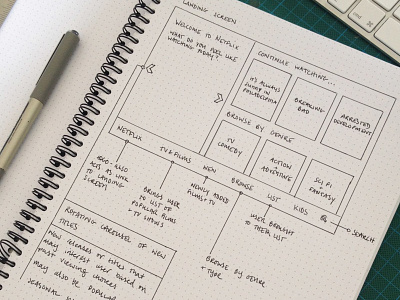 LANDING SCREEN
WELCOME TO NETFLIX
WHAT DO YOU FEEL LIKE
WATCHING TODAY?
CONTINUE WATCHING...
IT'S ALWAYS
SUNNY IN
PHILADELPHIA
BREAKING
BAD
ARRESTED
DEVELOPMENT
BROWSE BY GENRE
TV
COMEDY
ACTION
ADVENTURE
SCI FI
+
FANTASY
NETFLIX
TV & FILMS
NEW
BROWSE
LIST
KIDS
SEARCH
ALSO
ACTS AS LINK
TO LANDING
SCREEN
BRINGS USER
TO LIST OF
POPULAR FILMS
+ TV SHOWS
NEWLY ADDED
FILMS + TV
BROWSE BY GENRE
+ TYPE
USER BROUGHT
TO THEIR LIST
ROTATING CAROUSEL OF NEW
TITLES
NEW RELEASES OR TITLES THAT
MAY INTEREST USER BASED ON
PAST VIEWING CHOICES
MAY ALSO BE POPULAR
SEASONAL